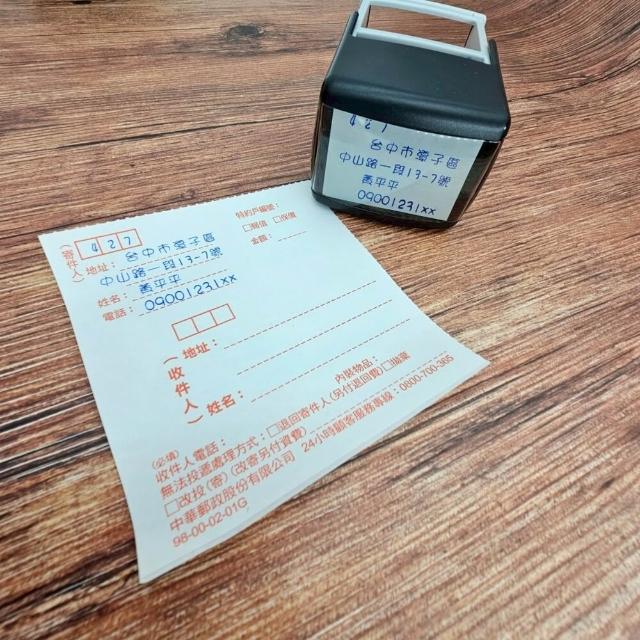 427
台中市潭子區
中山路一段13-7號
黃平平
09001231xx
特約戶編號：
□報值 □收價
金額：
(寄件人)
427
地址：台中市潭子區
中山路一段13-7號
姓名：黃平平
電話：09001231xx
(收件人)
地址：
姓名：
內裝物品：
(必填)
收件人電話：
無法投遞處理方式：□退回寄件人(另付退回費)□拋棄
□改投(寄)(改寄另付資費)
中華郵政股份有限公司 24小時顧客服務專線：0800-700-365
98-00-02-01G